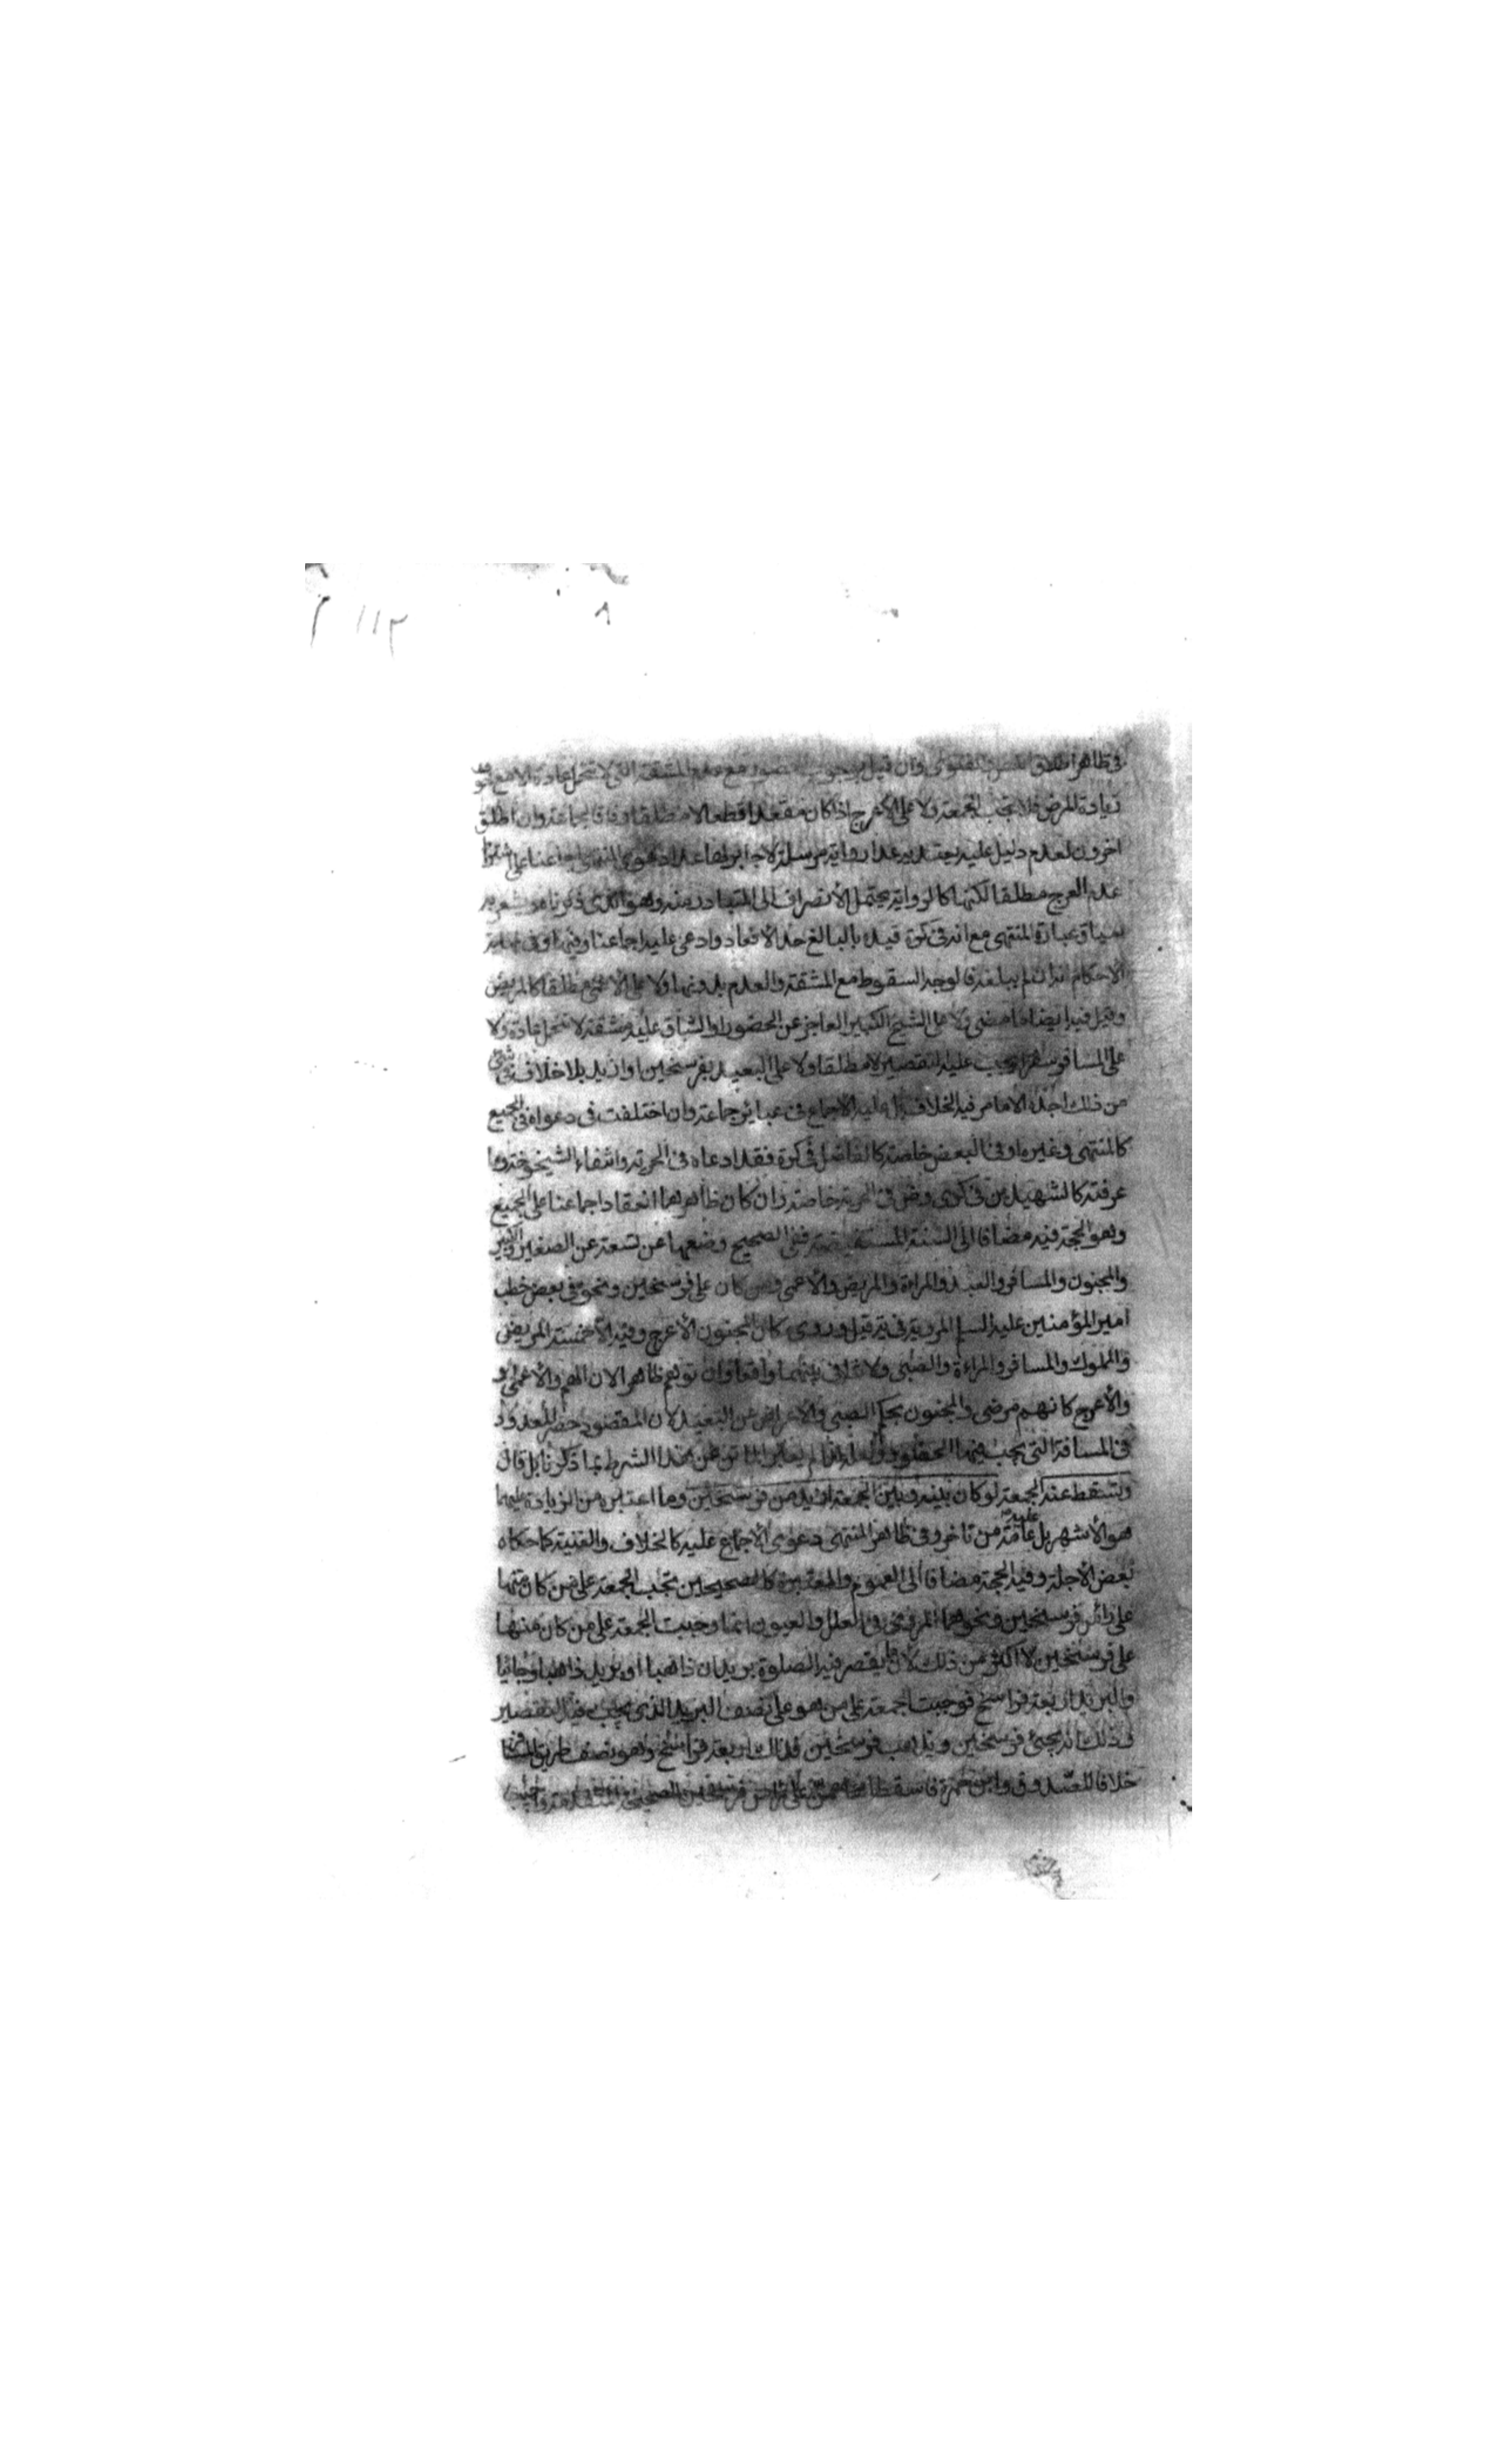 ١١٣
٨
في ظاهر اطلاق النص والفتوى وان قيل بوجوب الحضور مع عدم المشقة التي لا تتحمل عادة الا مع خوف
زيادة المرض فلا تجب الجمعة ولا على الاعرج اذا كان مقعدا قطعا لا مطلقا وفاقا لجماعة وان اطلق
اخرون لعدم دليل عليه يعتد به عدا رواية مرسلة لا جابر لها عدا دعوى المنتهى اجماعنا على اشتراط
عدم العرج مطلقا لكنها كالرواية يحتمل الانصراف الى المتبادر منه وهو الذي ذكرنا
سياق عبارة المنتهى مع انه في كرة قيده بالبالغ حد الاقعاد وادعى عليه اجماعنا وفيها وفي
الاحكام انه ان لم يبلغه فالوجه السقوط مع المشقة والعدم بدونها ولا على الاعمى مطلقا كالمريض
وقيل فيه ايضا ما مضى ولا على الشيخ الكبير العاجز عن الحضور او الشاق عليه مشقة لا تتحمل عادة ولا
على المسافر سفرا يجب عليه التقصير لا مطلقا ولا على البعيد بفرسخين او ازيد بلا خلاف في شيء
من ذلك اجده الا ما مر فيه الخلاف بل عليه الاجماع في عبائر جماعة وان اختلفت في دعواه في الجميع
كالمنتهى وغيره او في البعض خاصة كالفاضل في كرة فقد ادعاه في الحرية وانتفاء الشيخوخة وما
عرفته كالشهيدين في كرى وض في الحرية خاصة وان كان ظاهرهما انعقاد اجماعنا على الجميع
وهو الحجة فيه مضافا الى السنة المستفيضة ففي الصحيح وضعها عن تسعة عن الصغير والكبير
والمجنون والمسافر والعبد والمراة والمريض والاعمى ومن كان على فرسخين ونحوه في بعض خطب
امير المؤمنين عليه السلم المروية في يه قيل وروى كان المجنون الاعرج وفيه الا خمسة المريض
والمملوك والمسافر والمراءة والصبي ولا خلاف بينهما واقعا وان توهم ظاهرا لان الهم والاعمى و
والاعرج كانهم مرضى والمجنون بحكم الصبي والاعراض عن البعيد لان المقصود حصر المعدود
في المسافة التي يجب فيها الحضور لم يعبر الماتن عن هذا الشرط بما ذكرنا بل قال
وتسقط عند الجمعة لو كان بينه وبين الجمعة ازيد من فرسخين وما اعتبره من الزيادة عليهما
هو الاشهر بل عليه عامة من تاخر وفي ظاهر المنتهى دعوى الاجماع عليه كالخلاف والغنية كما حكاه
بعض الاجلة وفيه الحجة مضافا الى العموم والمعتبرة كالصحيحين تجب الجمعة على من كان منها
على راس فرسخين ونحوهما المروي في العلل والعيون انما وجبت الجمعة على من كان منها
على فرسخين لا اكثر من ذلك لان ما يقصر فيه الصلوة بريدان ذاهبا او بريد ذاهبا وجائيا
والبريد اربعة فراسخ فوجبت الجمعة على من هو على نصف البريد الذي يجب فيه التقصير
وذلك انه يجئ فرسخين ويذهب فرسخين فذلك اربعة فراسخ وهو نصف طريق المسافر
خلافا للصدوق وابن حمزة فاسقطاها عمن على راس فرسخين للصحيحة المتقدمة